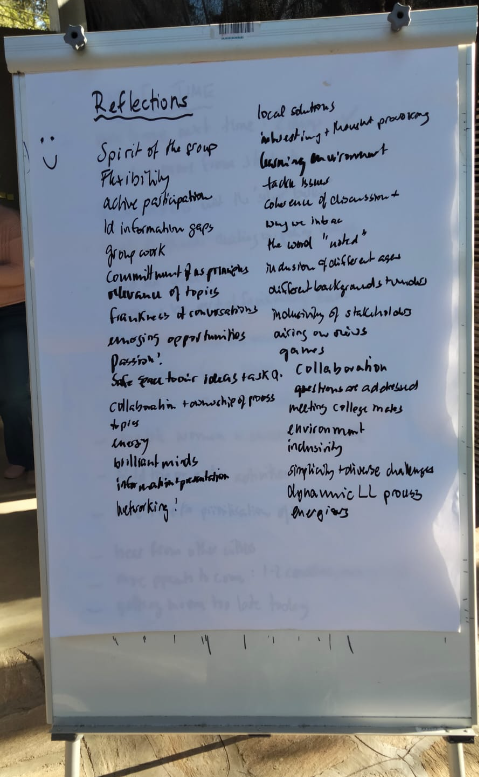 Reflections
Spirit of the group
Flexibility
active participation
Id information gaps
group work
Committment of us principles
relevance of topics
frankness of conversations
emerging opportunities
Passion!
Safe space to air ideas + ask Q.
collaboration + ownership of process
topics
energy
brilliant minds
information + presentation
Networking!
local solutions
interesting + thought provoking
learning environment
tackle issues
coherence of discussion +
way we
the word "noted"
inclusion of different ages
different backgrounds +
inclusivity of stakeholders
airing our views
games
Collaboration
questions are addressed
meeting college mates
environment
inclusivity
simplicity + diverse challenges
dynammic LL process
energisers